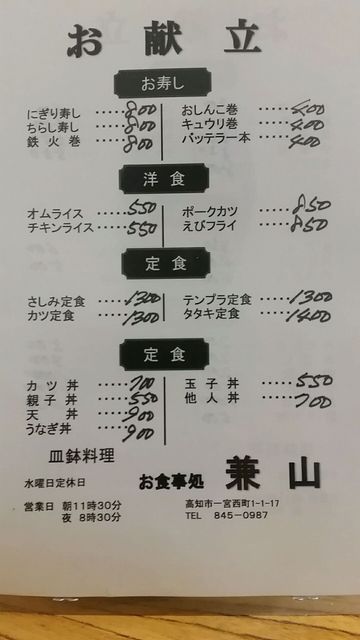 お献立
お寿し
にぎり寿し ・・・・・800
ちらし寿し ・・・・・800
鉄火巻 ・・・・・800
おしんこ巻 ・・・・・400
キュウリ巻 ・・・・・400
バッテラ一本 ・・・・400
洋食
オムライス ・・・・・550
チキンライス ・・・・・550
ポークカツ ・・・・・850
えびフライ ・・・・・850
定食
さしみ定食 ・・・・・1300
カツ定食 ・・・・・1300
テンプラ定食 ・・・・・1300
タタキ定食 ・・・・・1400
定食
カツ丼 ・・・・・700
親子丼 ・・・・・550
天丼 ・・・・・900
うなぎ丼 ・・・・・900
玉子丼 ・・・・・550
他人丼 ・・・・・700
皿鉢料理
水曜日定休日
営業日 朝11時30分
夜 8時30分
お食事処 兼山
高知市一宮西町1-1-17
TEL 845-0987